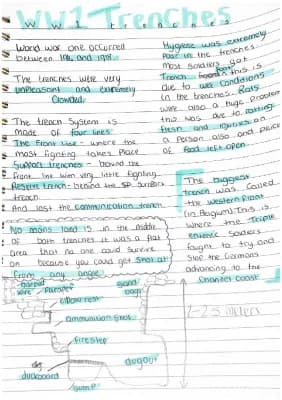 WW1 Trenches
WW1 trenches
World war one occurred
between 1914 and 1918.
The trenches were very
unpleasant and extremely
crowded.
The trench System is
made of four lines
The Front line - where the
most fighting takes place
Support trenches - behind the
front line when very little fighting
Reserve trench - behind the support
trench
And last the communication trench.
No mans land is in the middle
of both trenches it was a flat
area that no one could survive
on because you could get shot at
from any angle
Hygiene was extremely
poor in the trenches
most soldiers got
Trench foot this is
due to wet conditions
in the trenches. Rats
were also a huge problem
this was due to rotting
flesh and injuries on
a person also and
of food left open
The biggest
trench was called
the western front
(in Belgium) this is
where the Triple
entente Soldiers
fought to try and
stop the Germans
advancing to the
Channel coast
barbed
wire
parapet
sand
bags
elbow rest
ammunition shelf
firestep
dugout
duckboard
sump
2-2.5 meters